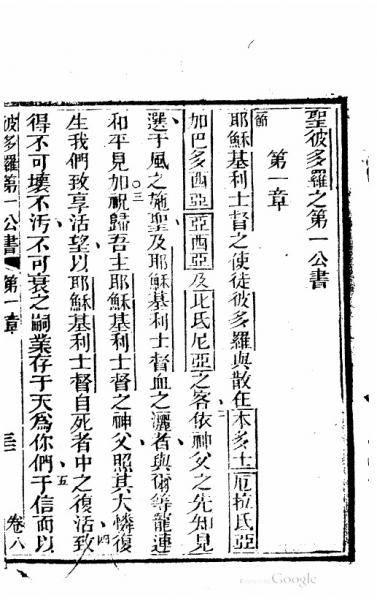 聖彼多羅之第一公書
第一章
節
耶穌基利士督之使徒彼多羅與散在本多士厄拉氏亞
加巴多西亞亞西亞及比氏尼亞之客依神父之先知見
二
選于風之施聖及耶穌基利士督血之灑者與爾等寵連
和平見加祝歸吾主耶穌基利士督之神父照其大憐復
三
四
生我們致享活望以耶穌基利士督自死者中之復活致
得不可壞不汚不可衰之嗣業存于天爲你們于信而以
五
彼多羅第一公書
第一章
卷八
Google